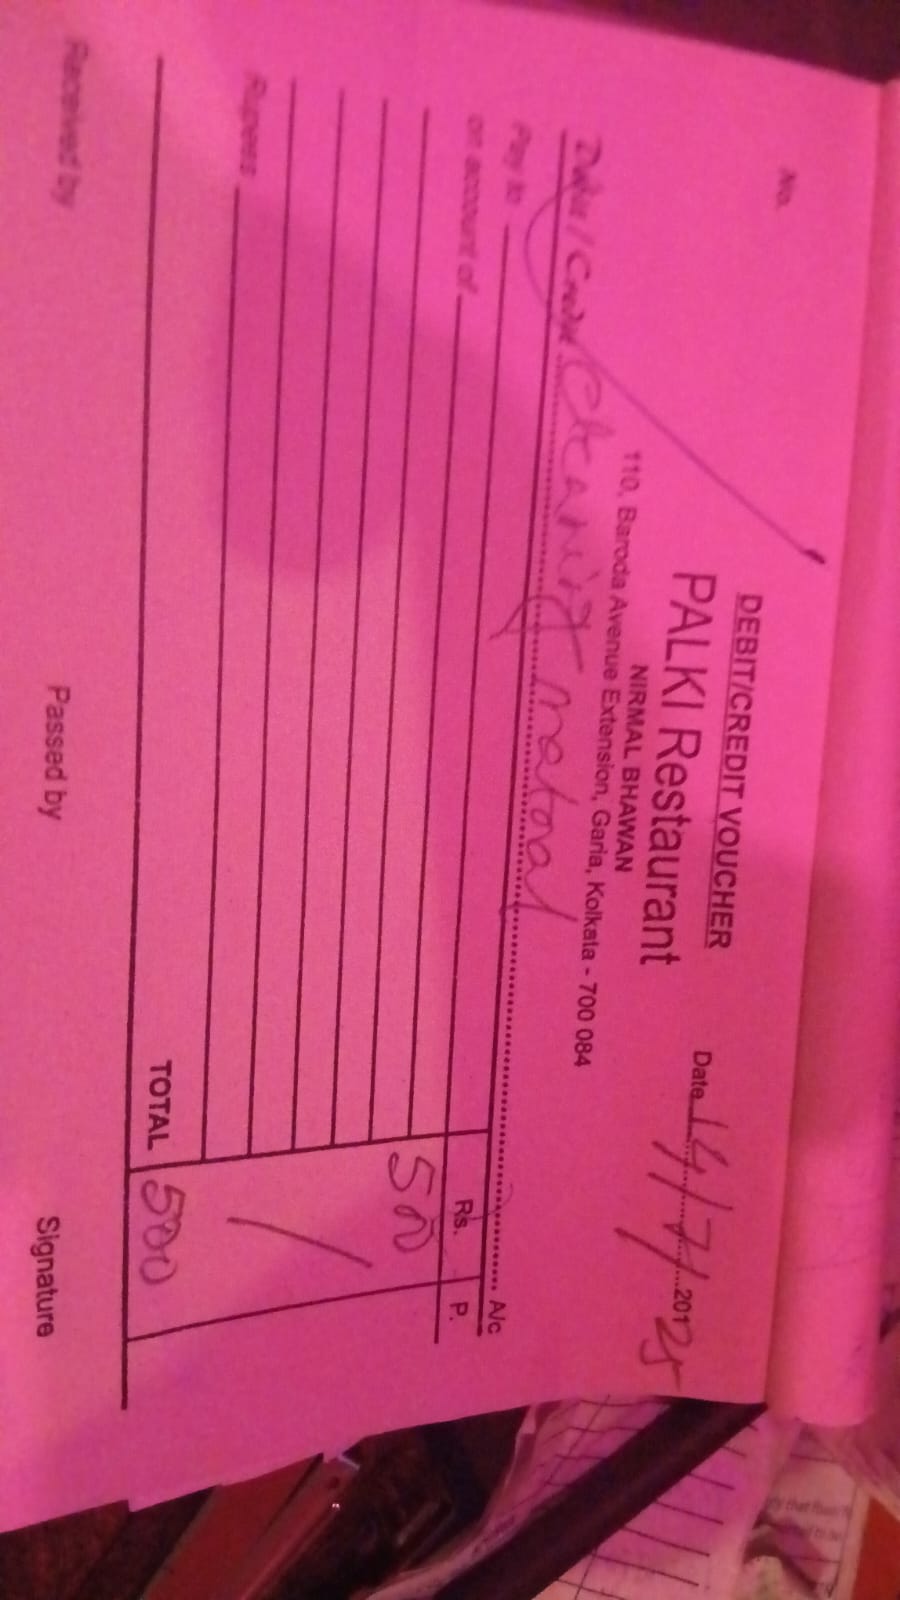 No.
DEBIT/CREDIT VOUCHER
PALKI Restaurant
NIRMAL BHAWAN
110, Baroda Avenue Extension, Garia, Kolkata - 700 084
Date 14/7/2012025
Debit / Credit A/c
Pay to
on account of Rs. P.
500
Rupees
TOTAL 500
Received by Passed by Signature